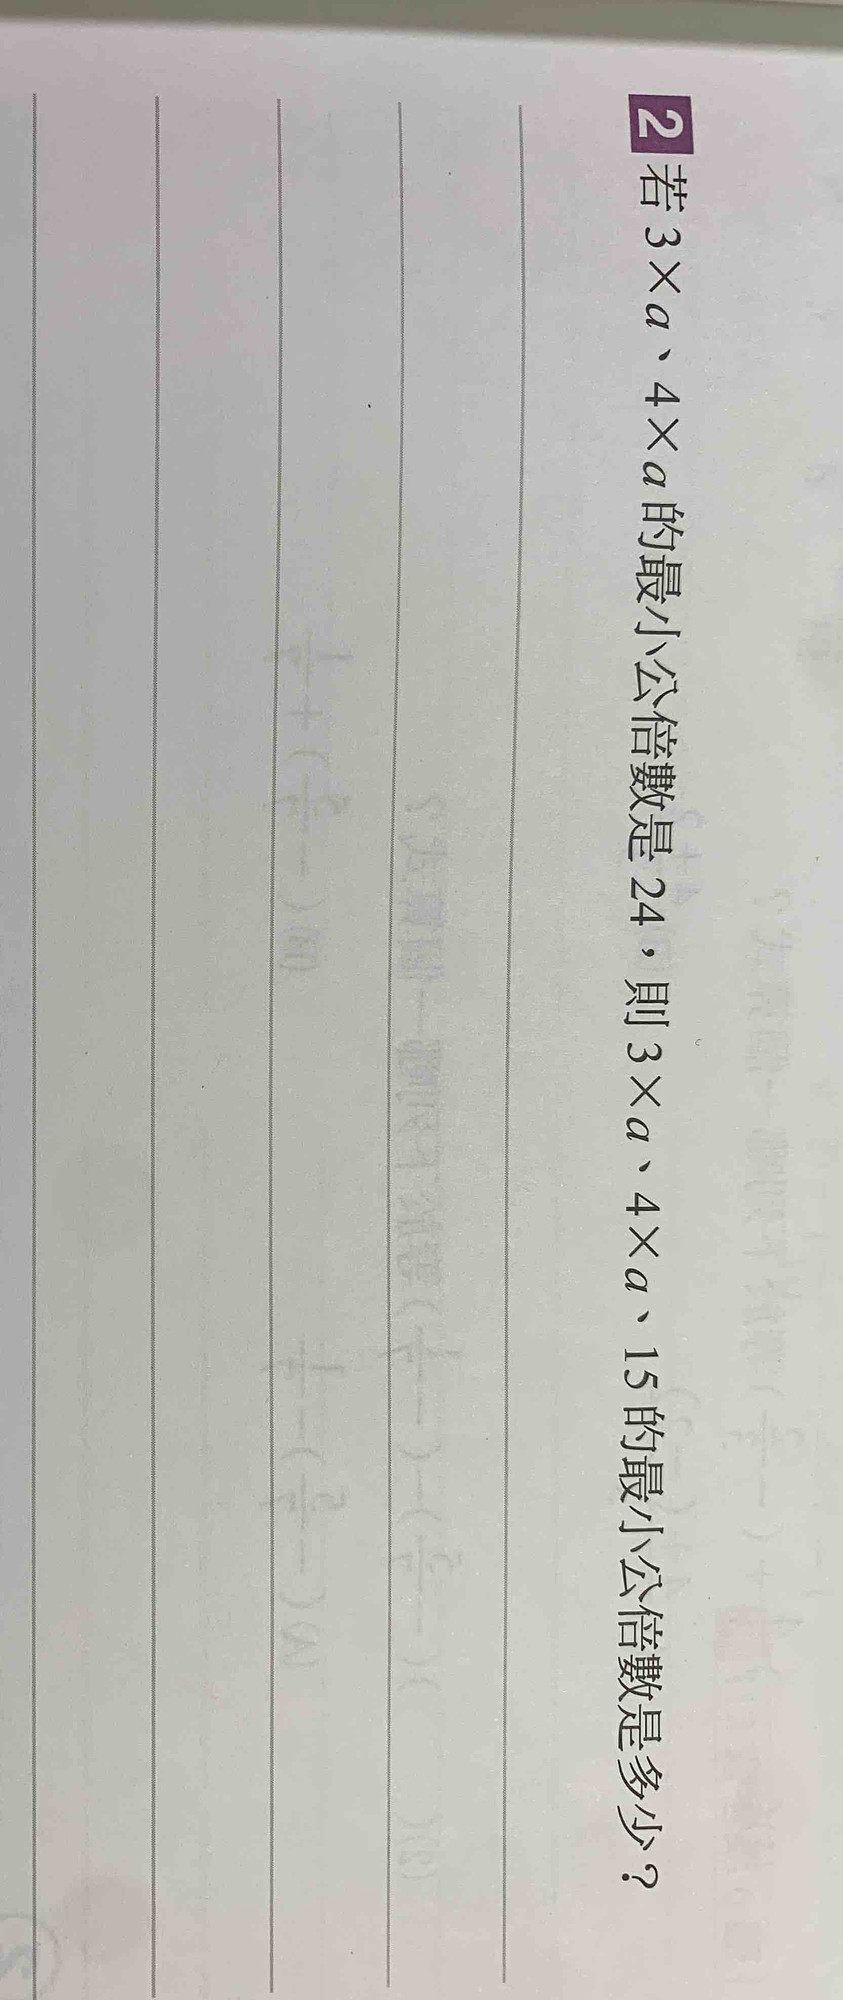 2 若 3×a、4×a 的最小公倍數是 24，則 3×a、4×a、15 的最小公倍數是多少？